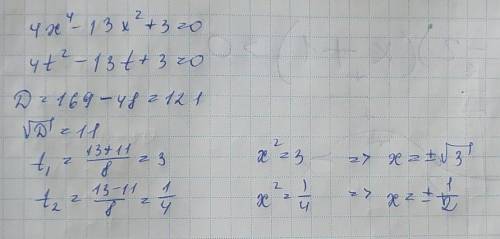 4x⁴ - 13x² + 3 = 0
4t² - 13t + 3 = 0
D = 169 - 48 = 121
√D = 11
t₁ = (13+11)/8 = 3   x² = 3   => x = ±√3
t₂ = (13-11)/8 = 1/4   x² = 1/4   => x = ±1/2